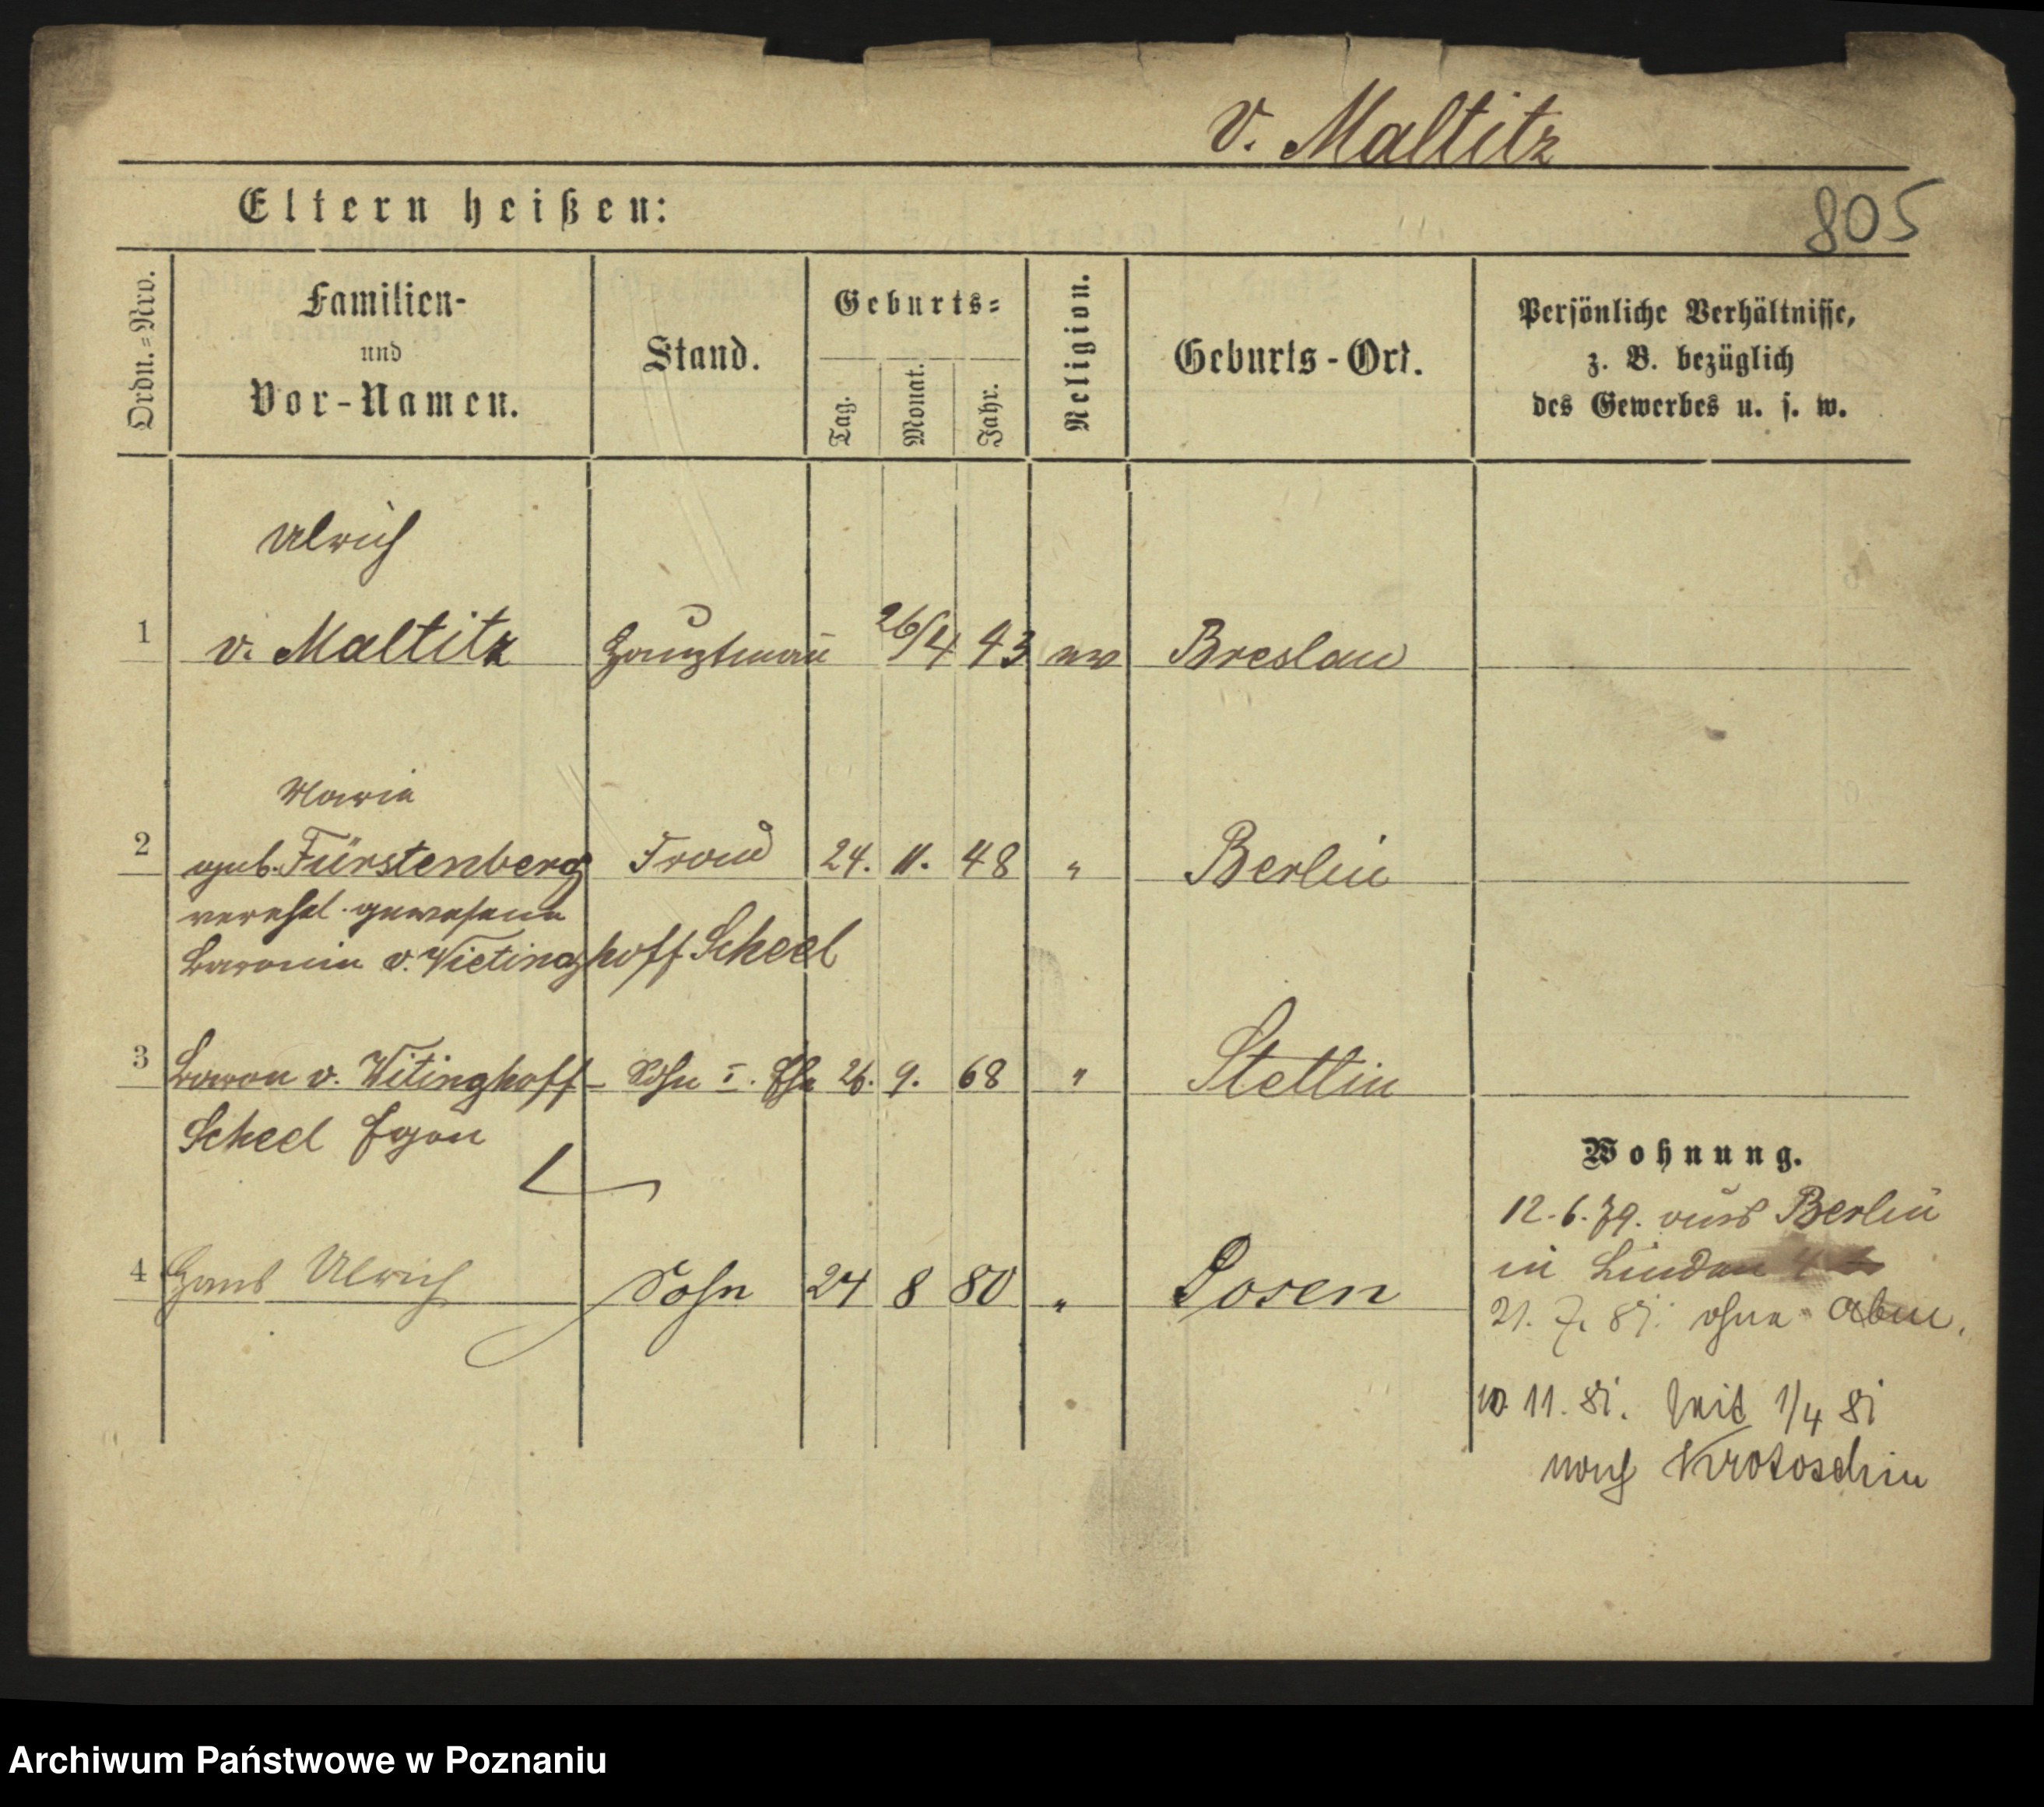 v. Maltitz
Eltern heißen:
805
Ordn.=Nro.
Familien-
und
Vor-Namen.
Stand.
Geburts=
Tag.
Monat.
Jahr.
Religion.
Geburts-Ort.
Persönliche Verhältnisse,
z. B. bezüglich
des Gewerbes u. s. w.
Ulrich
1 v. Maltitz Hauptmañ 26/4 43 ev Breslau
Maria
2 geb. Fürstenberg Frau 24. 11. 48 " Berlin
verehel. gewesene
Baronin v. Vietinghoff Scheel
3 Baron v. Vitinghoff- Sohn I. Ehe 26. 9. 68 " Stettin
Scheel Egon
4 Hans Ulrich Sohn 24 8 80 " Posen
Wohnung.
12.6.79. aus Berlin
in Linden
21. 7. 81. ohne Abm.
10. 11. 81. seit 1/4 81
nach Krotoschin
Archiwum Państwowe w Poznaniu